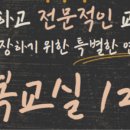 하고 전문적인 교
장하기 위한 특별한
목교실 1